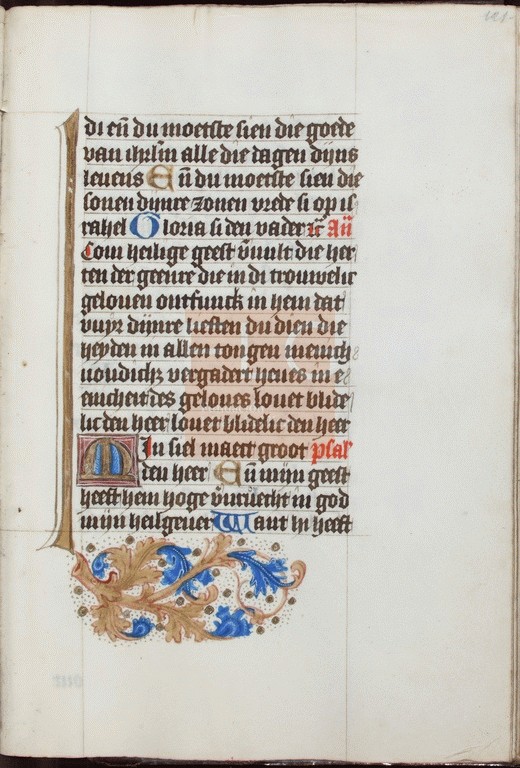 di eñ du moetste sien die goede
van ihrlm alle die dagen dijns
leuens Eñ du moetste sien die
sonen dijnre zonen vrede si op is
rahel Gloria si den vader ic̄ Añ
Com heilige geest v̄uult die her
ten der geenre die in di trouwelic
gelouen ontfunck in hem dat
vuyr dijnre liefsten du dien die
heyden in allen tongen menich
uoudich vergadert heues in e
enicheit des geloues louet blide
lic den heer louet blidelic den heer
Mijn siel maect groot psal
den heer Eñ mijn geest
heeft hem hoge v̄uruecht in god
mijn heilgeuer Want hi heeft
121